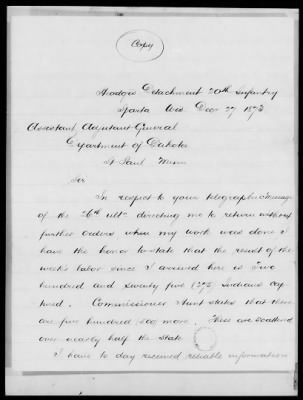 Copy
Hodges Detachment 20th Infantry
Sparta Wis. Decr 27 1873
Assistant Adjutant General
Department of Dakota
St Paul Minn
Sir
In respect to your telegraphic message
of the 26th ult. directing me to return without
further orders when my work was done I
have the honor to state that the result of the
week's labor since I arrived here is Two
hundred and seventy five (275) Indians cap
tured. Commissioner Hunt states that there
are five hundred (500) more. These are scattered
over nearly half the state
I have to day received reliable information